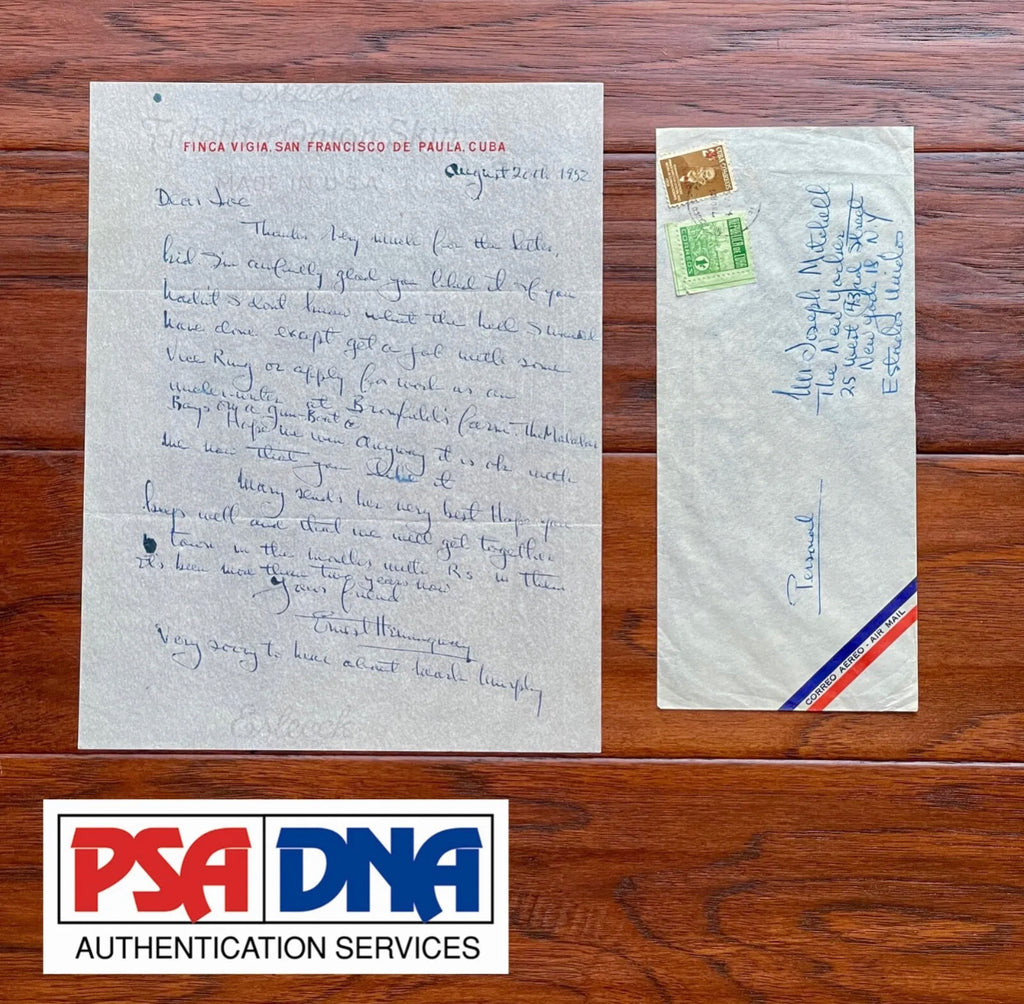 Esleeck
Fidelity Onion Skin
MADE IN U.S.A.
FINCA VIGIA, SAN FRANCISCO DE PAULA, CUBA
August 20th 1952
Dear Joe
Thanks very much for the letter,
kid I'm awfully glad you liked it if you
hadn't I don't know what the hell I would
have done except get a job with some
Vice Ring or apply for work as an
under-writer at Bromfield's farm. The Malabar
Boys on a Gun-Boat
Hope we win anyway it is ok with
me now that you like it
Mary sends her very best Hope you
keep well and that we will get together
in town in the months with Rs in them
it's been more than two years now
Yours friend
Ernest Hemingway
Very sorry to hear about Murphy
Esleeck
CUBA CORREOS
REPUBLICA DE CUBA
1
Mr. Joseph Mitchell
The New Yorker
25 West 43rd Street
New York 18 N.Y.
Estados Unidos
Personal
CORREO AÉREO - AIR MAIL
PSA DNA
AUTHENTICATION SERVICES